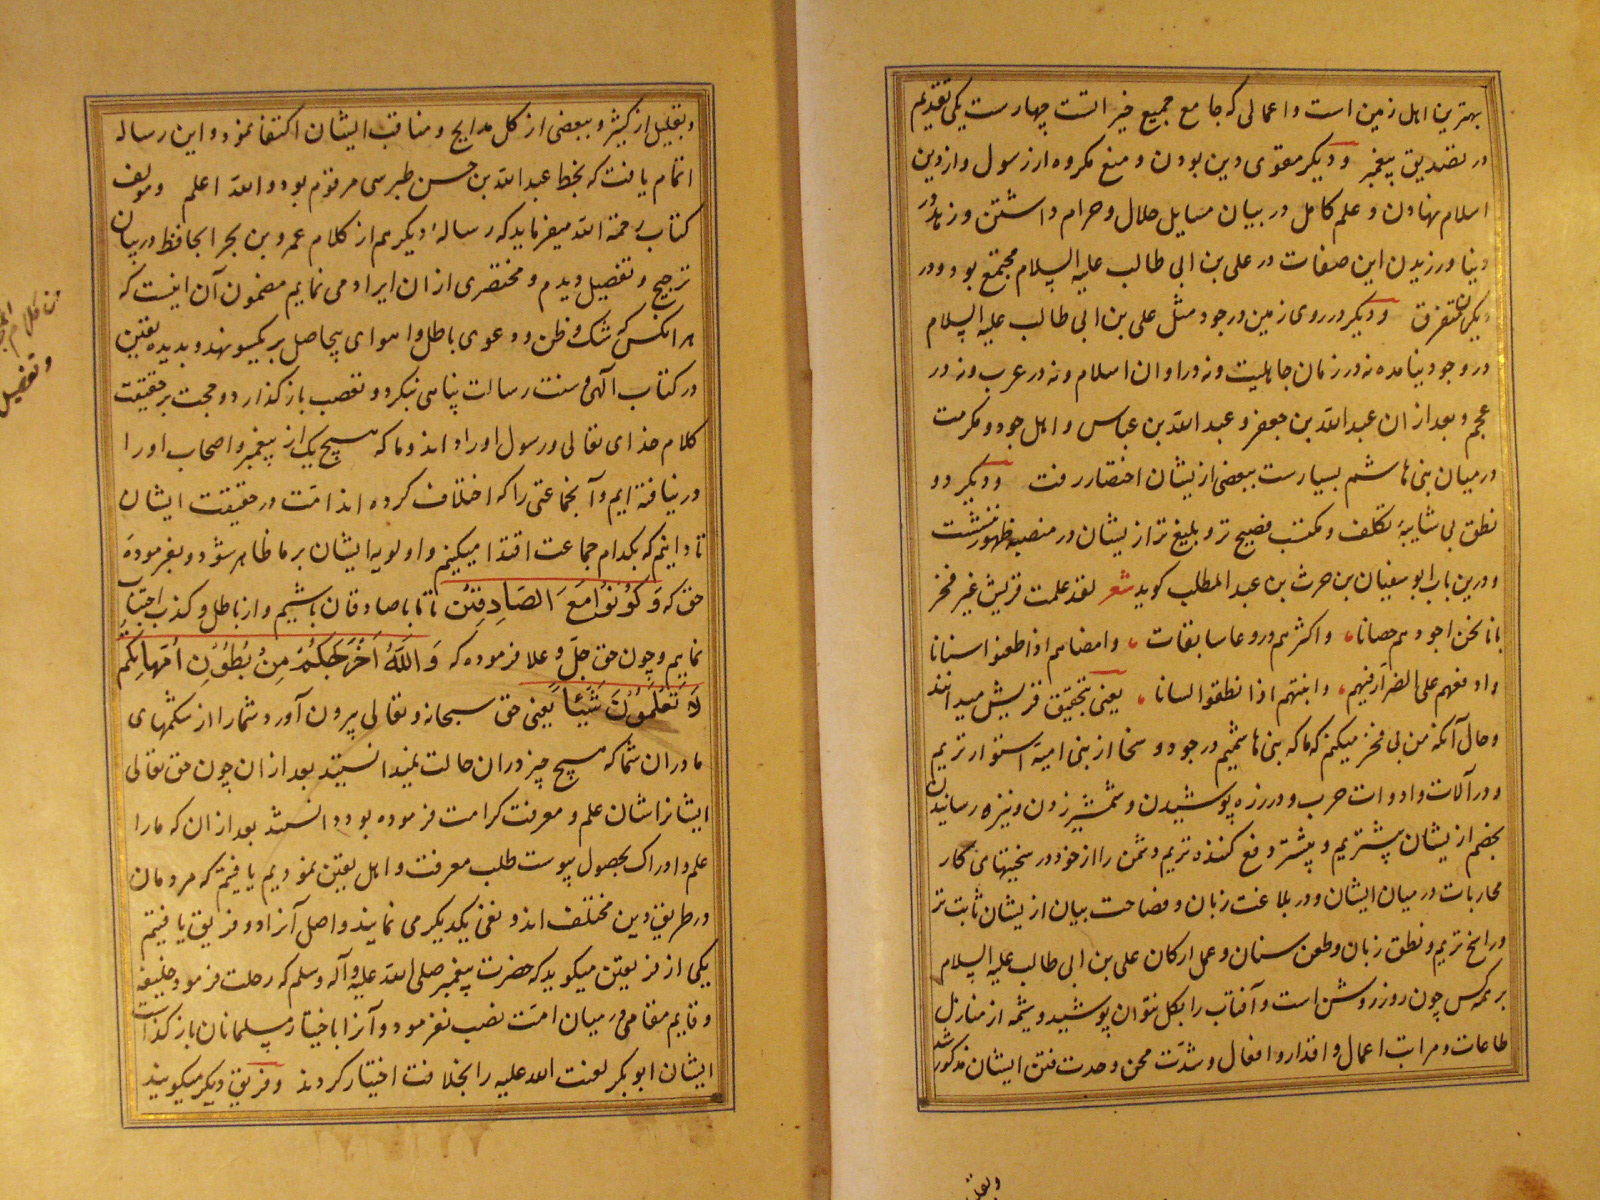 بهترین اهل زمین است و اعمالی که جامع جمیع خیر است چهارست یکی تقدیم
در تصدیق پیغمبر و دیگر مقوی دین بودن و منع مکروه از رسول و از دین
اسلام نهادن و علم کامل در بیان مسایل حلال و حرام داشتن و زهد در
دنیا ورزیدن این صفات در علی بن ابی طالب علیه السلام مجتمع بود و در
دیگران متفرق و دیگر در روی زمین در جود مثل علی بن ابی طالب علیه السلام
در وجود نیامده نه در زمان جاهلیت و نه در اوان اسلام و نه در عرب و نه در
عجم و بعد از ان عبد الله بن جعفر و عبد الله بن عباس و اهل جود و مکرمت
در میان بنی هاشم بسیارست ببعضی ازیشان اختصار رفت و دیگر در
نطق بی شایبهٔ تکلف و مکتب فصیح تر و بلیغ تر ازیشان در منصبه ظهور ننشست
و درین باب ابو سفیان بن حرث بن عبد المطلب کوید شعر لقد علمت قریش غیر فخر
بانا نحن اجودهم حصانا واکثرهم دروعا سابغات وامضاهم اذا طعنوا سنانا
وادفعهم علی الضراء فیهم وابینهم اذا نطقوا لسانا یعنی بتحقیق قریش میدانند
و حال آنکه من بی فخر میکنم که ما که بنی هاشمیم در جود و سخا از بنی امیه استوار تریم
و در آلات و ادوات حرب و در زره پوشیدن و شمشیر زدن و نیزه رسانیدن
بخصم ازیشان پیشتریم و بیشتر دفع کننده تریم دشمن را از خود در سختیهای کار
محاربات در میان ایشان و در بلاغت زبان و فصاحت بیان ازیشان ثابت تر
و راسخ تریم و نطق زبان و طعن سنان و عمل ارکان علی بن ابی طالب علیه السلام
بر همه کس چون روز روشن است و آفتاب را بکل نتوان پوشید و شمه از منازل
طاعات و مراتب اعمال و اقدار و افعال و شدّت محن و حدت فتن ایشان مذکور شد
و بقلیل از کثیر و ببعضی از کل مدایح و مناقب ایشان اکتفا نمود و این رساله
اتمام یافت که بخط عبد الله بن حسن طبرسی مرقوم بود و الله اعلم و مولف
کتاب رحمة الله میفرماید که رسالهٔ دیگر هم از کلام عمرو بن بحر الجاحظ در بیان
ترجیح و تفضیل دیدم و مختصری از ان ایراد می نمایم مضمون آن اینست که
هر انکس که شک و ظن و دعوی باطل و اهوای بیحاصل بر یکسو نهد و بدیده یقین
در کتاب آلهی و سنت رسالت پناهی نبکرد و تعصب باز کذارد و حجت بر حقیقت
کلام خدای تعالی و رسول او را داند و ما که هیچ یک از پیغمبر و اصحاب او را
در نیافته ایم و آنجماعتی را که اختلاف کرده اند امّت در حقیقت ایشان
تا دانیم که بکدام جماعت اقتدا میکنیم و اولویه ایشان بر ما ظاهر شود و بفرمودهٔ
حق که وَكُونُوا مَعَ الصَّادِقِينَ تا ما با صادقان باشیم و از باطل و کذب اجتناب
نماییم و چون حق جلّ و علا فرموده که وَاللَّهُ أَخْرَجَكُمْ مِنْ بُطُونِ أُمَّهَاتِكُمْ
لَا تَعْلَمُونَ شَيْئًا یعنی حق سبحانه و تعالی بیرون آورد شما را از شکمهای
مادران شما که هیچ چیز در ان حالت نمیدانستید بعد از ان چون حق تعالی
ایشانرا شان علم و معرفت کرامت فرموده بود دانستند بعد از ان که ما را
علم و ادراک بحصول پیوست طلب معرفت و اهل یقین نمودیم یافتیم که مردمان
در طریق دین مختلف اند و نفی یکدیکر می نمایند و اصل آنرا دو فریق یافتیم
یکی از فریقین میکوید که حضرت پیغمبر صلی الله علیه و آله و سلم که رحلت فرمود خلیفه
و قایم مقامی در میان امّت نصب نفرمود و آنرا باختیار مسلمانان باز کذاشت
ایشان ابو بکر لعنت الله علیه را بخلافت اختیار کردند و فریق دیگر میکویند
من کلام
و تفضیل